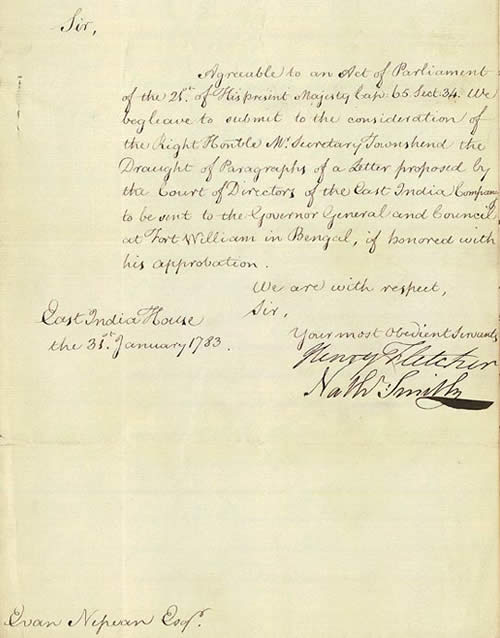 Sir,
Agreeable to an Act of Parliament
of the 21st. of His present Majesty Cap. 65 Sect. 34. We
beg leave to submit to the consideration of
the Right Honble Mr. Secretary Townshend the
Draught of Paragraphs of a Letter proposed by
the Court of Directors of the East India Company
to be sent to the Governor General and Council
at Fort William in Bengal, if honored with
his approbation.
We are with respect,
Sir,
Your most Obedient Servants
Henry Fletcher
Nathl. Smith
East India House
the 31st. January 1783.
Evan Nepean Esqr.